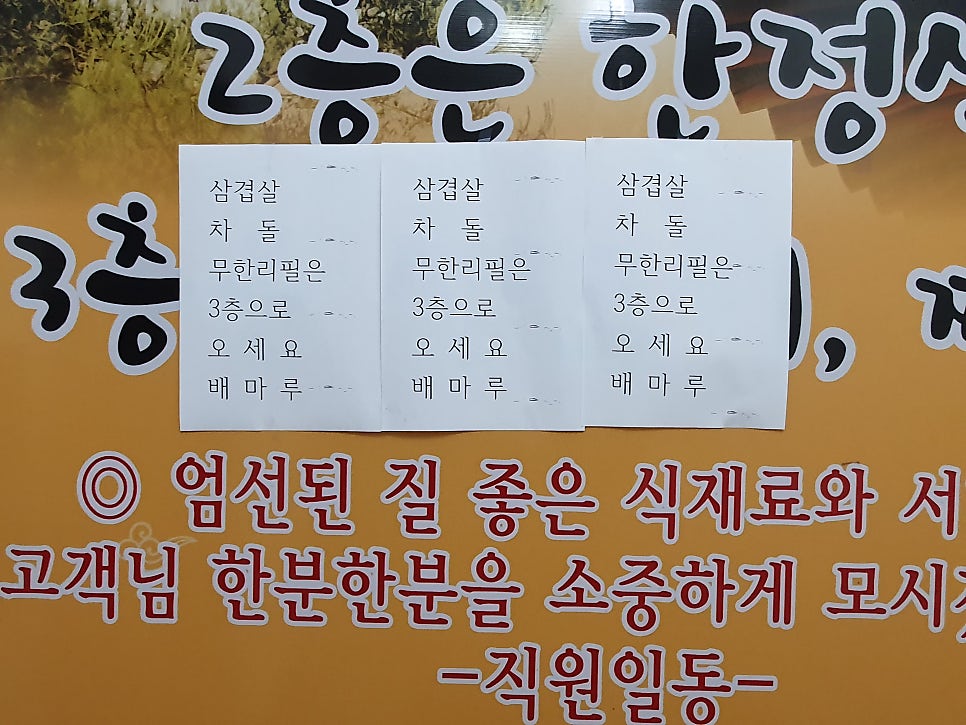 2층은 한정식
삼겹살
차 돌
무한리필은
3층으로
오 세 요
배 마 루
삼겹살
차 돌
무한리필은
3층으로
오 세 요
배 마 루
삼겹살
차 돌
무한리필은
3층으로
오 세 요
배 마 루
3층
◎ 엄선된 질 좋은 식재료와 서
고객님 한분한분을 소중하게 모시
-직원일동-